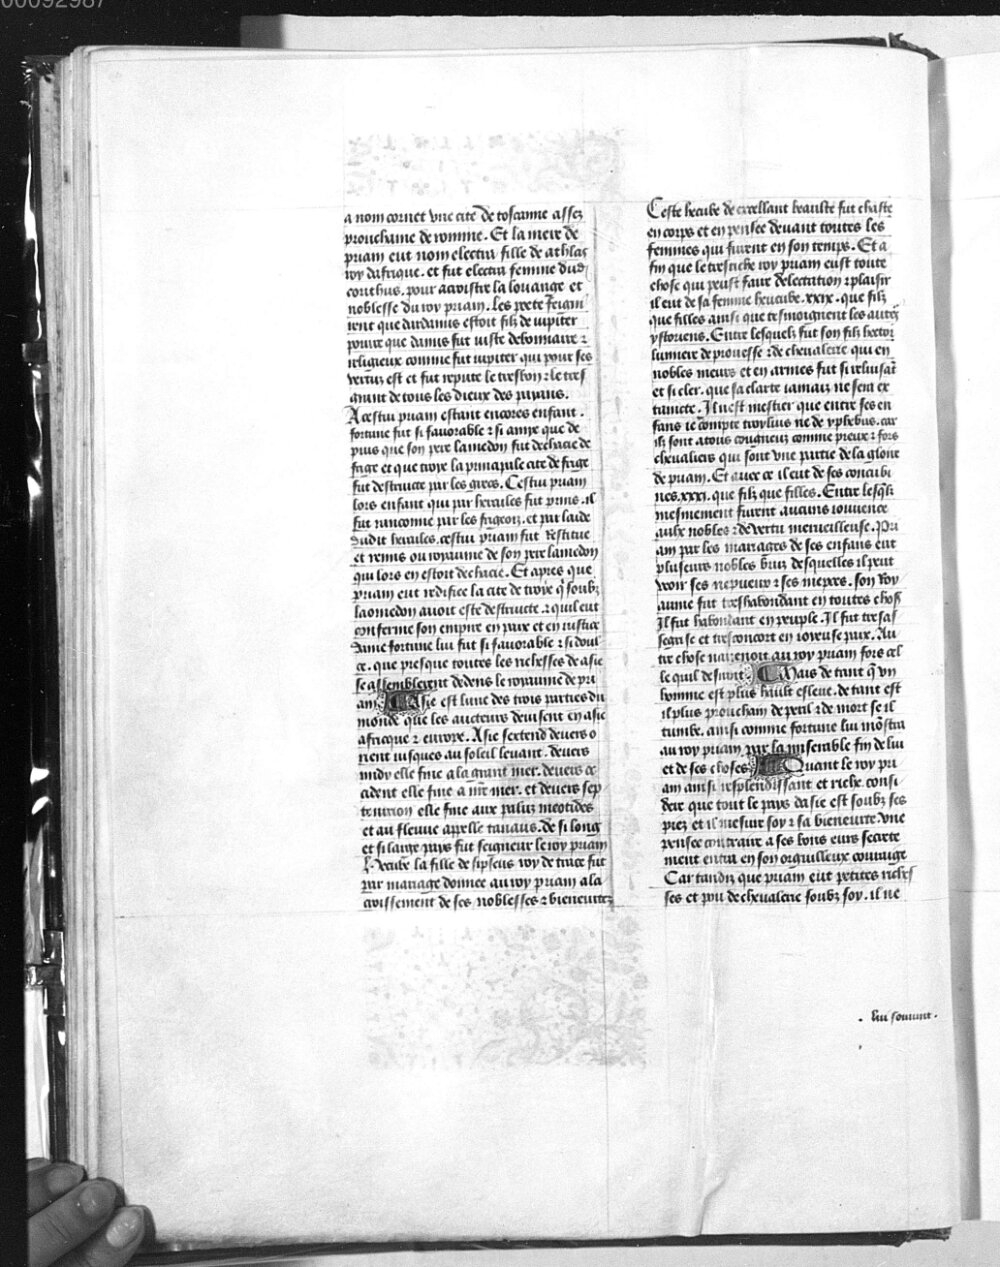 00092987
a nom cornet vne cite de toscanne assez
prouchaine de romme. Et la mere de
priam eut nom electra fille de athlas
roy dafrique. et fut electra femme dud
corithus. pour acroistre la louange et
noblesse du roy priam. Les poetes
ient que dardanus estoit filz de iupiter
pource que danus fut iuste debonnaire ⁊
religieux comme fut iupiter qui pour ses
vertus est et fut repute le tresbon ⁊ le tres
grant de tous les dieux des payans.
A cestui priam estant encores enfant.
fortune fut si fauorable ⁊ si amye que de
puis que son pere lamedon fut dechacie de
frige et que troye la principale cite de frige
fut destruicte par les grecs. Cestui priam
lors enfant qui par hercules fut prins. il
fut ranconne par les frigeois. et par laide
dudit hercules. cestui priam fut restitue
et remis ou royaume de son pere lamedon
qui lors en estoit dechacie. Et apres que
priam eut redifice la cite de troye q̄ soubz
laomedon auoit este destructe. ⁊ quil eut
conferme son empire en paix et en iustice
dame fortune lui fut si fauorable ⁊ si doul
ce. que presque toutes les richesses de asie
se assemblerent dedens le royaume de pri
am. Asie est lune des trois parties du
monde que les aucteurs deuisent en asie
affricque ⁊ europe. Asie sextend deuers o
rient iusques au soleil leuant. deuers
midy elle fine a la grant mer. deuers oc
cident elle fine a nr̄e mer. et deuers sep
tentrion elle fine aux paluz meotides
et au fleuue appelle tanaus. de si long
et si large pays fut seigneur le roy priam
Hecube la fille de sipseus roy de trace fut
par mariage donnee au roy priam a la
croissement de ses noblesses ⁊ bieneurtez
Ceste hecube de excellant beaulte fut chaste
en corps et en pensee deuant toutes les
femmes qui furent en son temps. Et a
fin que le tresriche roy priam eust toute
chose qui peust faire delectation ⁊ plaisir
il eut de sa femme heucube .xxix. que filz
que filles ainsi que tesmoignent les autres
ystoriens. Entre lesquelz fut son filz hector
lumiere de prouesse ⁊ de cheualerie qui en
nobles meurs et en armes fut si reluisāt
et si cler. que sa clarte iamais ne sera ex
taincte. Il nest mestier que entre ses en
fans ie compte troylius ne deyphebus. car
ilz sont a tous congneuz comme preux ⁊ fors
cheualiers qui sont vne partie de la gloire
de priam. Et auec ce il eut de ses concubi
nes .xxxi. que filz que filles. Entre lesqlz
mesmement furent aucuns iouuence
aulx nobles ⁊ de vertu merueilleuse. Pri
am par les mariages de ses enfans eut
plusieurs nobles bruz desquelles il peut
veoir ses nepueux ⁊ ses nieces. son roy
aume fut treshabondant en toutes choses
Il fut habondant en peuple. Il fut tresas
segrise et tresconcort en ioyeuse paix. Au
tre chose naitenoit au roy priam fors cel
le quil desiroit. Mais de tant q̄ vn
homme est plus hault esleue. de tant est
il plus prouchain de peril ⁊ de mort se il
tumbe. ainsi comme fortune lui mōstra
au roy priam par la miserable fin de lui
et de ses choses. Quant le roy pri
am ainsi resplendissant et riche. consi
dere que tout le pays dasie est soubz ses
piez et il mesure soy ⁊ sa bieneurte. vne
pensee contraire a ses bons eurs secrete
ment entra en son orguilleux couraige
Car tandiz que priam eut petites riches
ses et pou de cheualerie soubz soy. il ne
. lui souuint .